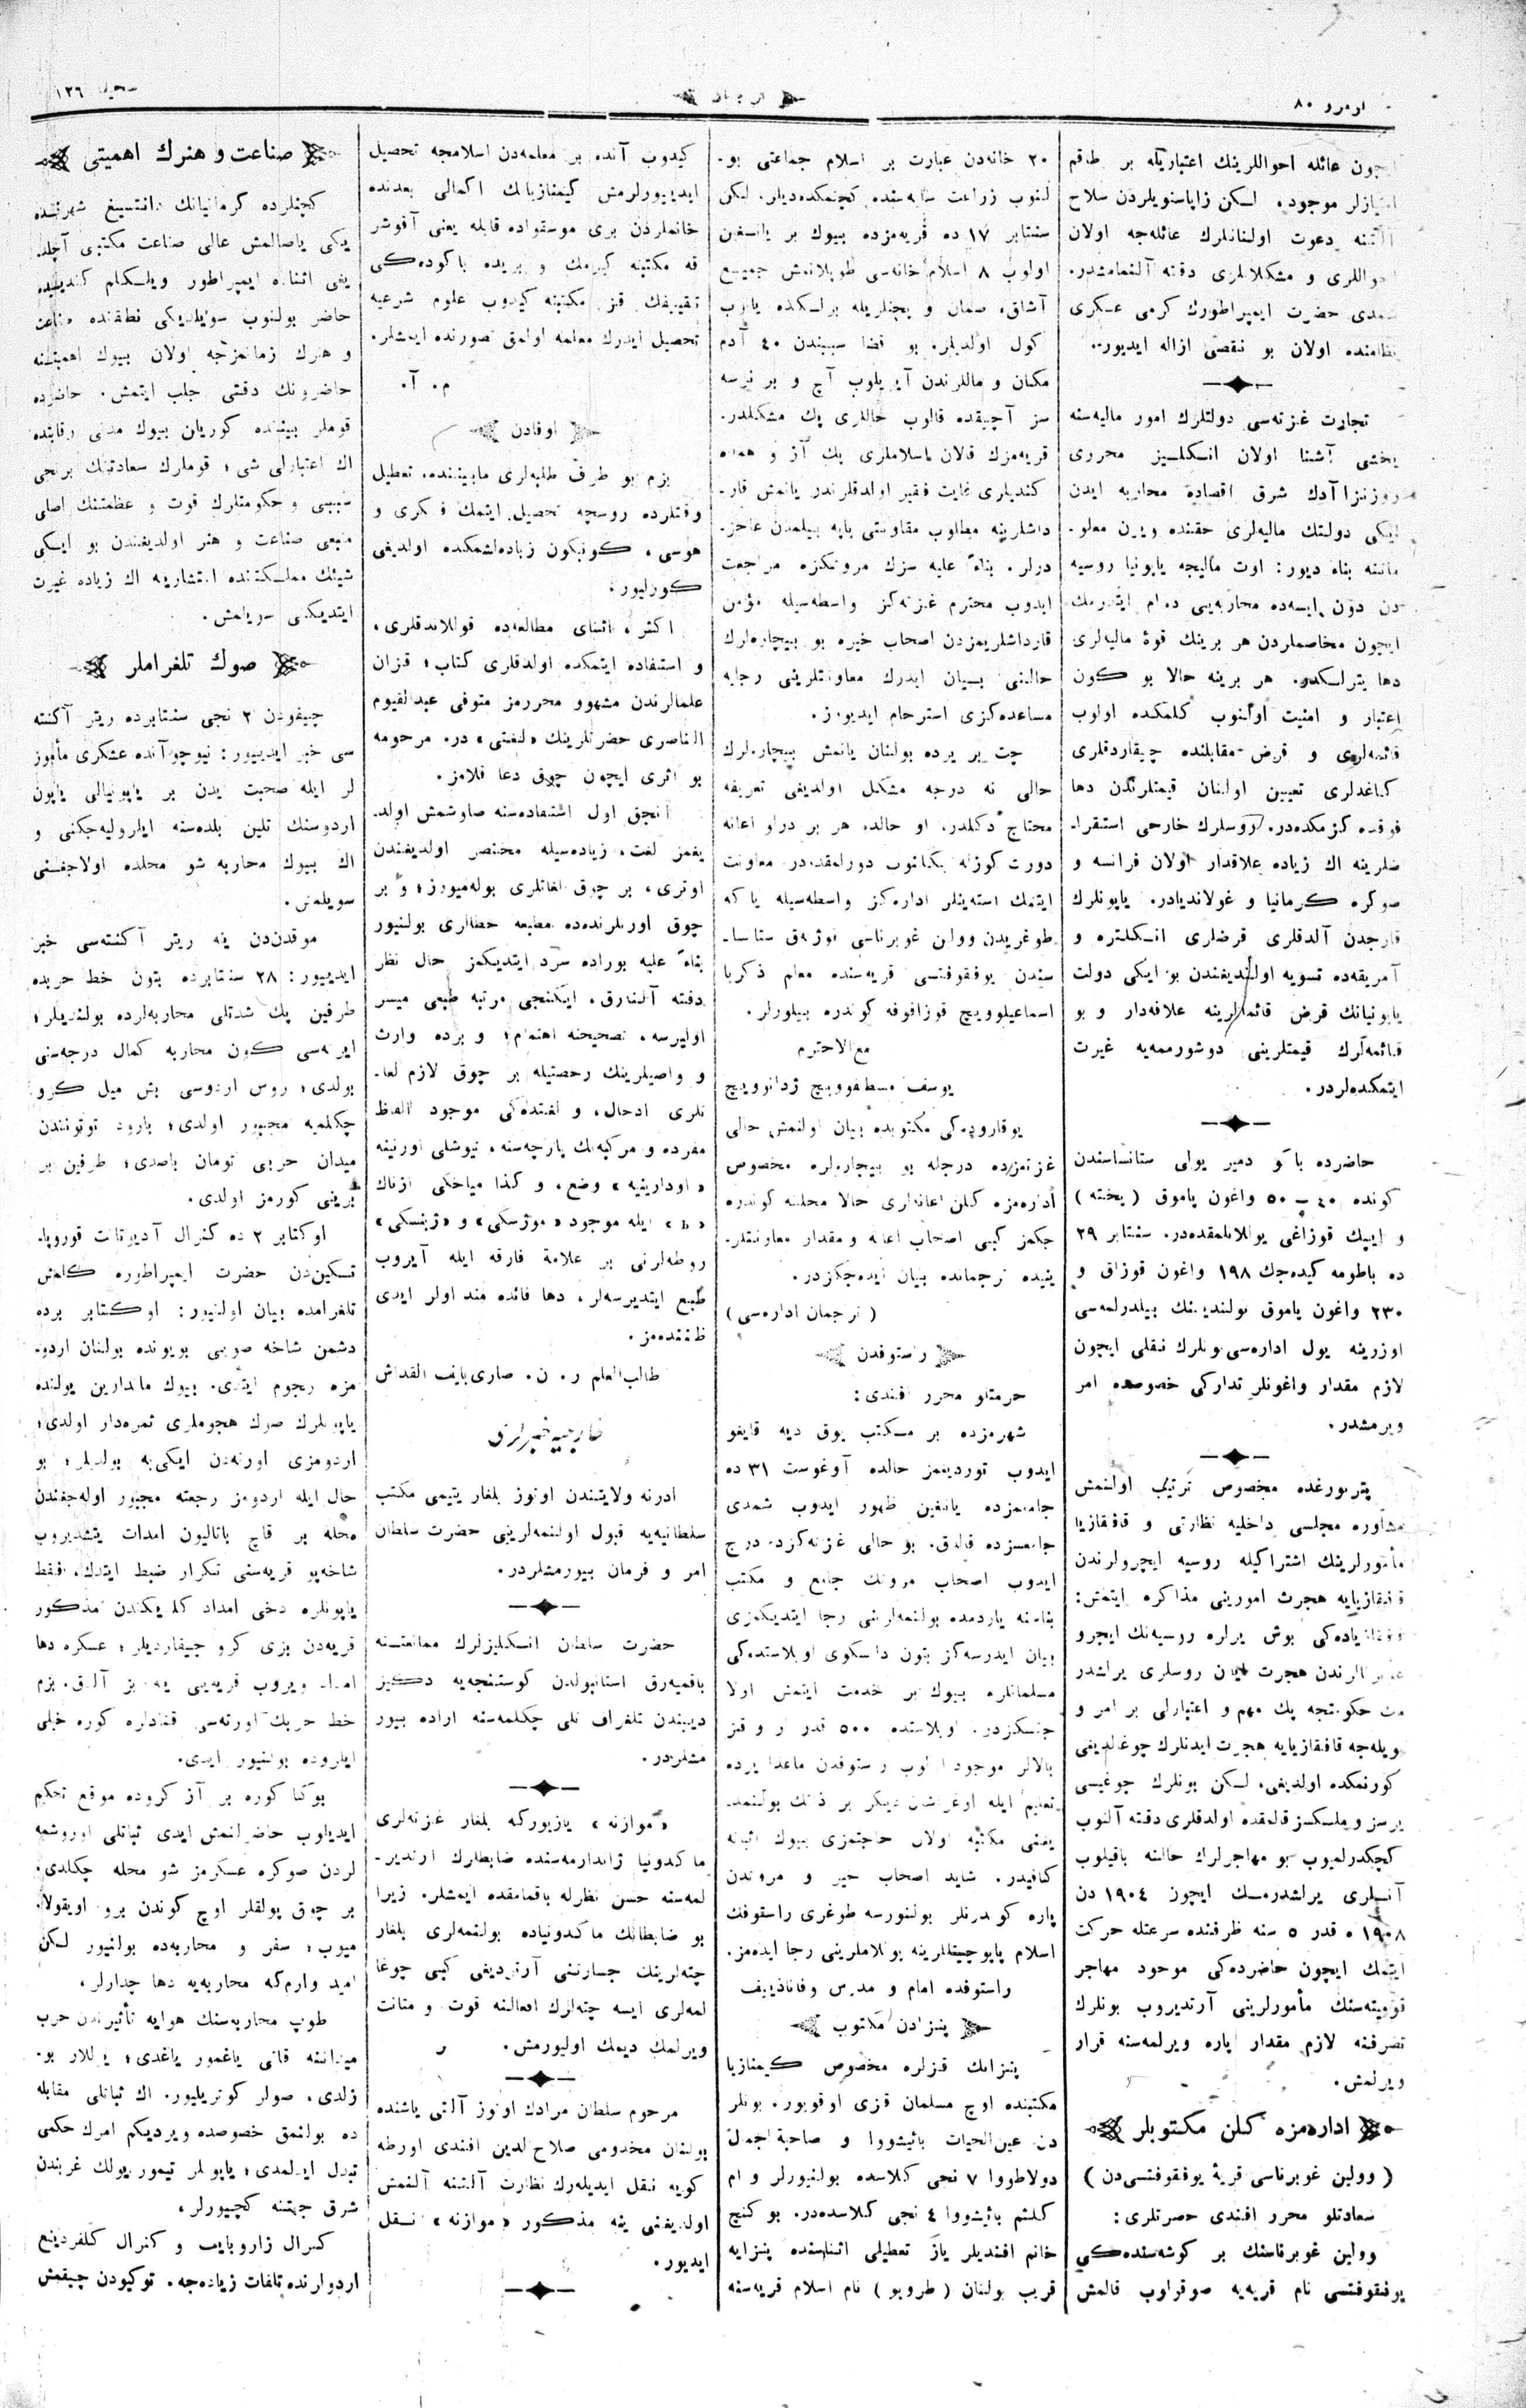 نومرو ٨٠
ترجمان
صحيفه ١٢٦
ايچون عائله احواللرينك اعتباريله بر طاقم
امتيازلر موجود. لكن زاپاسنويلردن سلاح
آلتنه دعوت اولنانلرك عائلهجه اولان
احواللرى و مشكلاتلرى دقته آلنمامشدر.
شمدى حضرت ايمپراطورك كرمى عسكرى
نظامنده اولان بو نقصى ازاله ايديور.
تجارت غزتهسى دولتلرك امور ماليهسنه
يخشى آشنا اولان انكليز محررى
روزنزا آدك شرق اقصاده محاربه ايدن
ايكى دولتك ماليهلرى حقنده ويرن معلو-
ماتنه بناء ديور: اوت ماليجه ياپونيا روسيه
دن دون ايسهده محاربهيى دوام ايتدرمك
ايچون مخاصملردن هر برينك قوۀ ماليهلرى
دها يترلكدر. هر برينه حالا بو كون
اعتبار و امنيت اولنوب كلمكده اولوب
قائمهلرى و قرض مقابلنده چيقاردقلرى
كاغدلرى تعيين اولنان قيمتلرندن دها
فوقده كزمكدهدر. روسلرك خارجى استقرا-
ضلرينه اك زياده علاقدار اولان فرانسه و
صوكره كرمانيا و غولانديادر. ياپونلرك
خارجدن آلدقلرى قرضلرى انكلتره و
آمريقهده تسويه اولنديغندن بو ايكى دولت
ياپونيانك قرض قائمهلرينه علاقهدار و بو
قائمهلرك قيمتلرينى دوشورممهيه غيرت
ايتمكدهلردر.
حاضرده باكو دمير يولى ستانساسندن
كونده ٤٠ ـ ٥٠ واغون پاموق (يخته)
و ايپك قوزاغى يوللانلمقدهدر. سنتابر ٢٩
ده باطومه كيدهجك ١٩٨ واغون قوزاق و
٢٣٠ واغون پاموق بولنديغنك بيلدرلمهسى
اوزرينه يول ادارهسى بونلرك نقلى ايچون
لازم مقدار واغونلر تداركى خصوصده امر
ويرمشدر.
پتربورغده مخصوص ترتيب اولنمش
مشاوره مجلسى داخليه نظارتى و قافقازيا
مأمورلرينك اشتراكيله روسيه ايچرولرندن
قافقازيايه هجرت امورينى مذاكره ايتمش:
قافقازيادهكى بوش يرلره روسيهنك ايچرو
هجرت ايدن روسلرى يراشدر
مك حكومتجه پك مهم و اعتبارلى بر امر و
ويلهجه قافقازيايه هجرت ايدنلرك چوغالديغى
كورنمكده اولديغى. لكن بونلرك چوغيسى
يرسز و ملكسز قالمقده اولدقلرى دقته آلنوب
كچكدرلميوب بو مهاجرلرك حالنه باقيلوب
آنلرى يراشدرمك ايچون ١٩٠٤ دن
١٩٠٨ ه قدر ٥ سنه ظرفنده سرعتله حركت
ايتمك ايچون حاضردهكى موجود مهاجر
قوميتهسنك مأمورلرينى آرتديروب بونلرك
تصرفنه لازم مقدار پاره ويرلمهسنه قرار
ويرلمش.
ادارهمزه كلن مكتوبلر
(وولين غوبرناسى قريۀ يوفقوفتسىدن)
سعادتلو محرر افندى حضرتلرى:
وولين غوبرناسنك بر كوشهسندهكى
يوفقوفتسى نام قريهيه صوقولوب قالمش
٢٠ خانهدن عبارت بر اسلام جماعتى بو-
لنوب زراعت سايهسنده كچنمكدهديلر. لكن
سنتابر ١٧ ده قريهمزده بيوك بر يانغين
اولوب ٨ اسلام خانهسى طوپلانمش جميع
آشاق، صمان و پچنلريله برلكده يانوب
كول اولديلر. بو قضا سببندن ٤٠ آدم
مكان و ماللرندن آيريلوب آچ و بر نرسه
سز آچيقده قالوب حاللرى پك مشكلدر.
قريهمزك قالان اسلاملرى پك آز و همده
كنديلرى غايت فقير اولدقلرندن يانمش قار-
داشلرينه مطلوب مقاونتى ياپه بيلمدن عاجز-
درلر. بناءً عليه سزك مروتكزه مراجعت
ايدوب محترم غزتهكز واسطهسيله مؤمن
قارداشلريمزدن اصحاب خيره بو بيچارهلرك
حالنى بيان ايدرك معاونتلرينى رجايه
مساعدهكزى استرحام ايديورز.
چت بر يرده بولنان يانمش بيچارهلرك
حالى نه درجه مشكل اولديغى تعريفه
محتاج دكلدر. او حالده هر بر درلو اعانه
دورت كوزله بكلنوب دورلمقدهدر. معاونت
ايتمك استهينلر ادارهكز واسطهسيله ياكه
طوغريدن وولين غوبرناسى ستانسا-
سندن يوفقوفتسى قريهسنده معلم ذكريا
اسماعيلوويچ قوزاقوفه كوندره بيلورلر.
مع الاحترم
يوسف مسطفوويچ ژدانوويچ
يوقاروده كى مكتوبده بيان اولنمش حالى
غزتهمزده درجله بو بيچارهلره مخصوص
ادارهمزه كلن اعانهلرى حالا محلنه كوندره
جكمز كبى اصحاب اعانه و مقدار معاونتلر-
ينيده ترجمانده بيان ايدهجكزدر.
(ترجمان ادارهسى)
راستوفدن
حرمتلو محرر افندى:
شهرمزده بر مكتب يوق ديه قايغو
ايدوب تورديغمز حالده آوغوست ٣١ ده
جامعمزده يانغين ظهور ايدوب شمدى
جامعسزده قالدق. بو حالى غزتهكزده درج
ايدوب اصحاب مروتك جامع و مكتب
بناسنه ياردمده بولنمهلرينى رجا ايتديكمزى
بيان ايدرسهكز بتون دانسكوى اوبلاستدهكى
مسلمانلره بيوك بر خدمت ايتمش اولا
جقسكزدر. اوبلاستده ٥٠٠ قدر ار و قز
بالالر موجود اولوب راستوفدن ماعدا يرده
تعليم ايله اوغراشان ديكر بر ذاتك بولنمد-
يغنى مكتبه اولان حاجتمزى بيوك اثباته
كافيدر. شايد اصحاب خير و مروتدن
پاره كوندرنلر بولنورسه طوغرى راستوفك
اسلام پاپوچيقلرينه يوللاملرينى رجا ايدهمز.
راستوفده امام و مدرس وفانازييف
پنزادن مكتوب
پنزانك قزلره مخصوص كيمنازيا
مكتبنده اوچ مسلمان قزى اوقويور. بونلر
دن عين الحيات باثيشووا و صاحبة الجمال
دولاطووا ٧ نجى كلاسده بولنيورلر و ام
كلثم باثيشووا ٤ نجى كلاسدهدر. بو كنچ
خانم افنديلر ياز تعطيلى اثناسنده پنزايه
قريب بولنان (طرويو) نام اسلام قريهسنه
كيدوب آنده بر معلمهدن اسلامجه تحصيل
ايدييورلرمش گيمنازيانك اكمالى بعدنده
خانملردن برى موسقواده قابله يعنى آقوشر
قه مكتبنه كيرمك و بريده باكودهكى
تقييفك قز مكتبنه كيدوب علوم شرعيه
تحصيل ايدرك معلمه اولمق تصورنده ايمشلر.
م. آ.
اوفادن
بزم بو طرف طلبهلرى مابيننده، تعطيل
وقتلرده روسچه تحصيل ايتمك فكرى و
هوسى، كونبكون زيادهلشمكده اولديغى
كورليور.
اكثر، اثناى مطالعهده قوللاندقلرى،
و استفاده ايتمكده اولدقلرى كتاب؛ قزان
علمالرندن مشهور محررمز متوفى عبدالقيوم
الناصرى حضرتلرينك «لغتى» در. مرحومه
بو اثرى ايچون چوق دعا قلامز.
آنجق اول استفادهسنه صاوشمش اولد-
يغمز لغت، زيادهسيله مختصر اولديغندن
اوترى، بر چوق لغاتلرى بولهميورز؛ و بر
چوق اورنلرندهده مطبعه خطالرى بولنيور
بناءً عليه بوراده سرد ايتديكمز حال نظر
دقته آلنارق، ايكنجى مرتبه طبعى ميسر
اوليرسه، تصحيحنه اهتمام؛ و برده وارث
و واصيلرينك رخصتيله بر چوق لازم لغا-
تلرى ادخال، و لغتدهكى موجود الفاظ
مفرده و مركبهنك پارچهسنه، تيوشلى اورنينه
«اوداريٓنيه» وضع، و كذا مياخكى ازناك
«ь» ايله موجود «موژسكى» و «ژينسكى»
روطهلرنى بر علامۀ فارقه ايله آيروب
طبع ايتديرسهلر، دها فائده مند اولر ايدى
ظننده‌مز.
طالب العلم ر. ن. صارى بايف القداش
خارجيه خبرلرى
ادرنه ولايتندن اوتوز بلغار يتيمى مكتب
سلطانيهيه قبول اولنمهلرينى حضرت سلطان
امر و فرمان بيورمشلردر.
حضرت سلطان انكليزلرك ممانعتنه
باقميهرق استانبولدن كوستنجهيه دكيز
ديبندن تلغراف تلى چكلمهسنه اراده بيور
مشلردر.
«موازنه» يازيوركه بلغار غزتهلرى
ماكدونيا ژاندارمهسنده ضابطلرك ارتدير-
لمهسنه حسن نظرله باقمامقده ايمشلر. زيرا
بو ضابطانك ماكدونياده بولنمهلرى بلغار
چتهلرينك جسارتنى آرتديرديغى كبى چوغا
لمهلرى ايسه چتهلرك افعالنه قوت و متانت
ويرلمك ديمك اوليورمش.
مرحوم سلطان مرادك اوتوز آلتى ياشنده
بولنان مخدومى صلاح الدين افندى اورطه
كويه نقل ايديلهرك نظارت آلتنه آلنمش
اولديغنى ينه مذكور «موازنه» نقل
ايديور.
صناعت و هنرك اهميتى
كچنلرده كرمانيانك دانتسيغ شهرنده
يكى ياصالمش عالى صناعت مكتبى آچلد-
يغى اثناده ايمپراطور ويلكلم كنديسيده
حاضر بولنوب سويلديكى نطقنده صناعت
و هنرك زمانمزجه اولان بيوك اهميتنه
حاضرونك دقتنى جلب ايتمش. حاضرده
قوملر بيننده كوريان بيوك مدنى رقابتده
اك اعتبارلى شى؛ قوملرك سعادتنك برنجى
سببى و حكومتلرك قوت و عظمتنك اصلى
منبعى صناعت و هنر اولديغندن بو ايكى
شيئك مملكتنده انتشارينه اك زياده غيرت
ايتديكنى سويلمش.
صوك تلغراملر
چيفودن ٢ نجى سنتابرده ريتر آكنته
سى خبر ايدييور: نيوچوآنده عسكرى مأمور
لر ايله صحبت ايدن بر ياپونيالى ياپون
اردوسنك تلين بلدهسنه ايلروليهجكنى و
اك بيوك محاربه شو محلده اولاجغنى
سويلمش.
موقدندن ينه ريتر آكنتهسى خبر
ايدييور: ٢٨ سنتابرده بتون خط حربده
طرفين پك شدتلى محاربهلرده بولنديلر؛
ايرتهسى كون محاربه كمال درجهسنى
بولدى؛ روس اردوسى بش ميل كرو
چكلميه مجبور اولدى؛ بارود توتوننندن
ميدان حربى تومان باصدى؛ طرفين بر
برينى كورمز اولدى.
اوكتابر ٢ ده كنرال آديوتانت قوروپا-
تسكيندن حضرت ايمپراطوره كلمش
تلغرامده بيان اولنيور: اوكتابر برده
دشمن شاخه صويى بويونده بولنان اردو-
مزه هجوم ايتدى. بيوك ماندارين يولنده
ياپونلرك صوك هجوملرى ثمرهدار اولدى؛
اردومزى اورتهدن ايكىيه بولديلر؛ بو
حال ايله اردومز رجعته مجبور اولهجغندن
محله بر قاچ باتاليون امدات يتشديروب
شاخهپو قريهسنى تكرار ضبط ايتدك، فقط
ياپونلره دخى امداد كلديكندن مذكور
قريهدن بزى كرو چيقارديلر؛ عسكره دها
امداد ويروب قريهيى ينه بز آلدق. بزم
خط حربك اورتهسى قنادلره كوره خيلى
ايلروده بولنيور ايدى.
بوكا كوره بر آز كروده موقع تحكيم
ايديلوب حاضرلنمش ايدى ثباتلى اوروشمه
لردن صوكره عسكرمز شو محله چكلدى؛
بر چوق پولقلر اوچ كوندن برو اويقولا-
ميوب؛ سفر و محاربهده بولنيور لكن
اميد وارمكه محاربهيه دها چدارلر.
طوپ محاربهسنك هوايه تأثيرندن حرب
ميداننه قاتى ياغمور ياغدى؛ يوللار بو-
زلدى، صولر كوتريليور. اك ثباتلى مقابله
ده بولنمق خصوصده ويرديكم امرك حكمى
تبدل ايدلمدى؛ ياپونلر تيمور يولك غربندن
شرق جهتنه كچيورلر.
كنرال زاروبايف و كنرال كلفردينغ
اردولرنده تلفات زيادهجه. توكيودن چيقمش